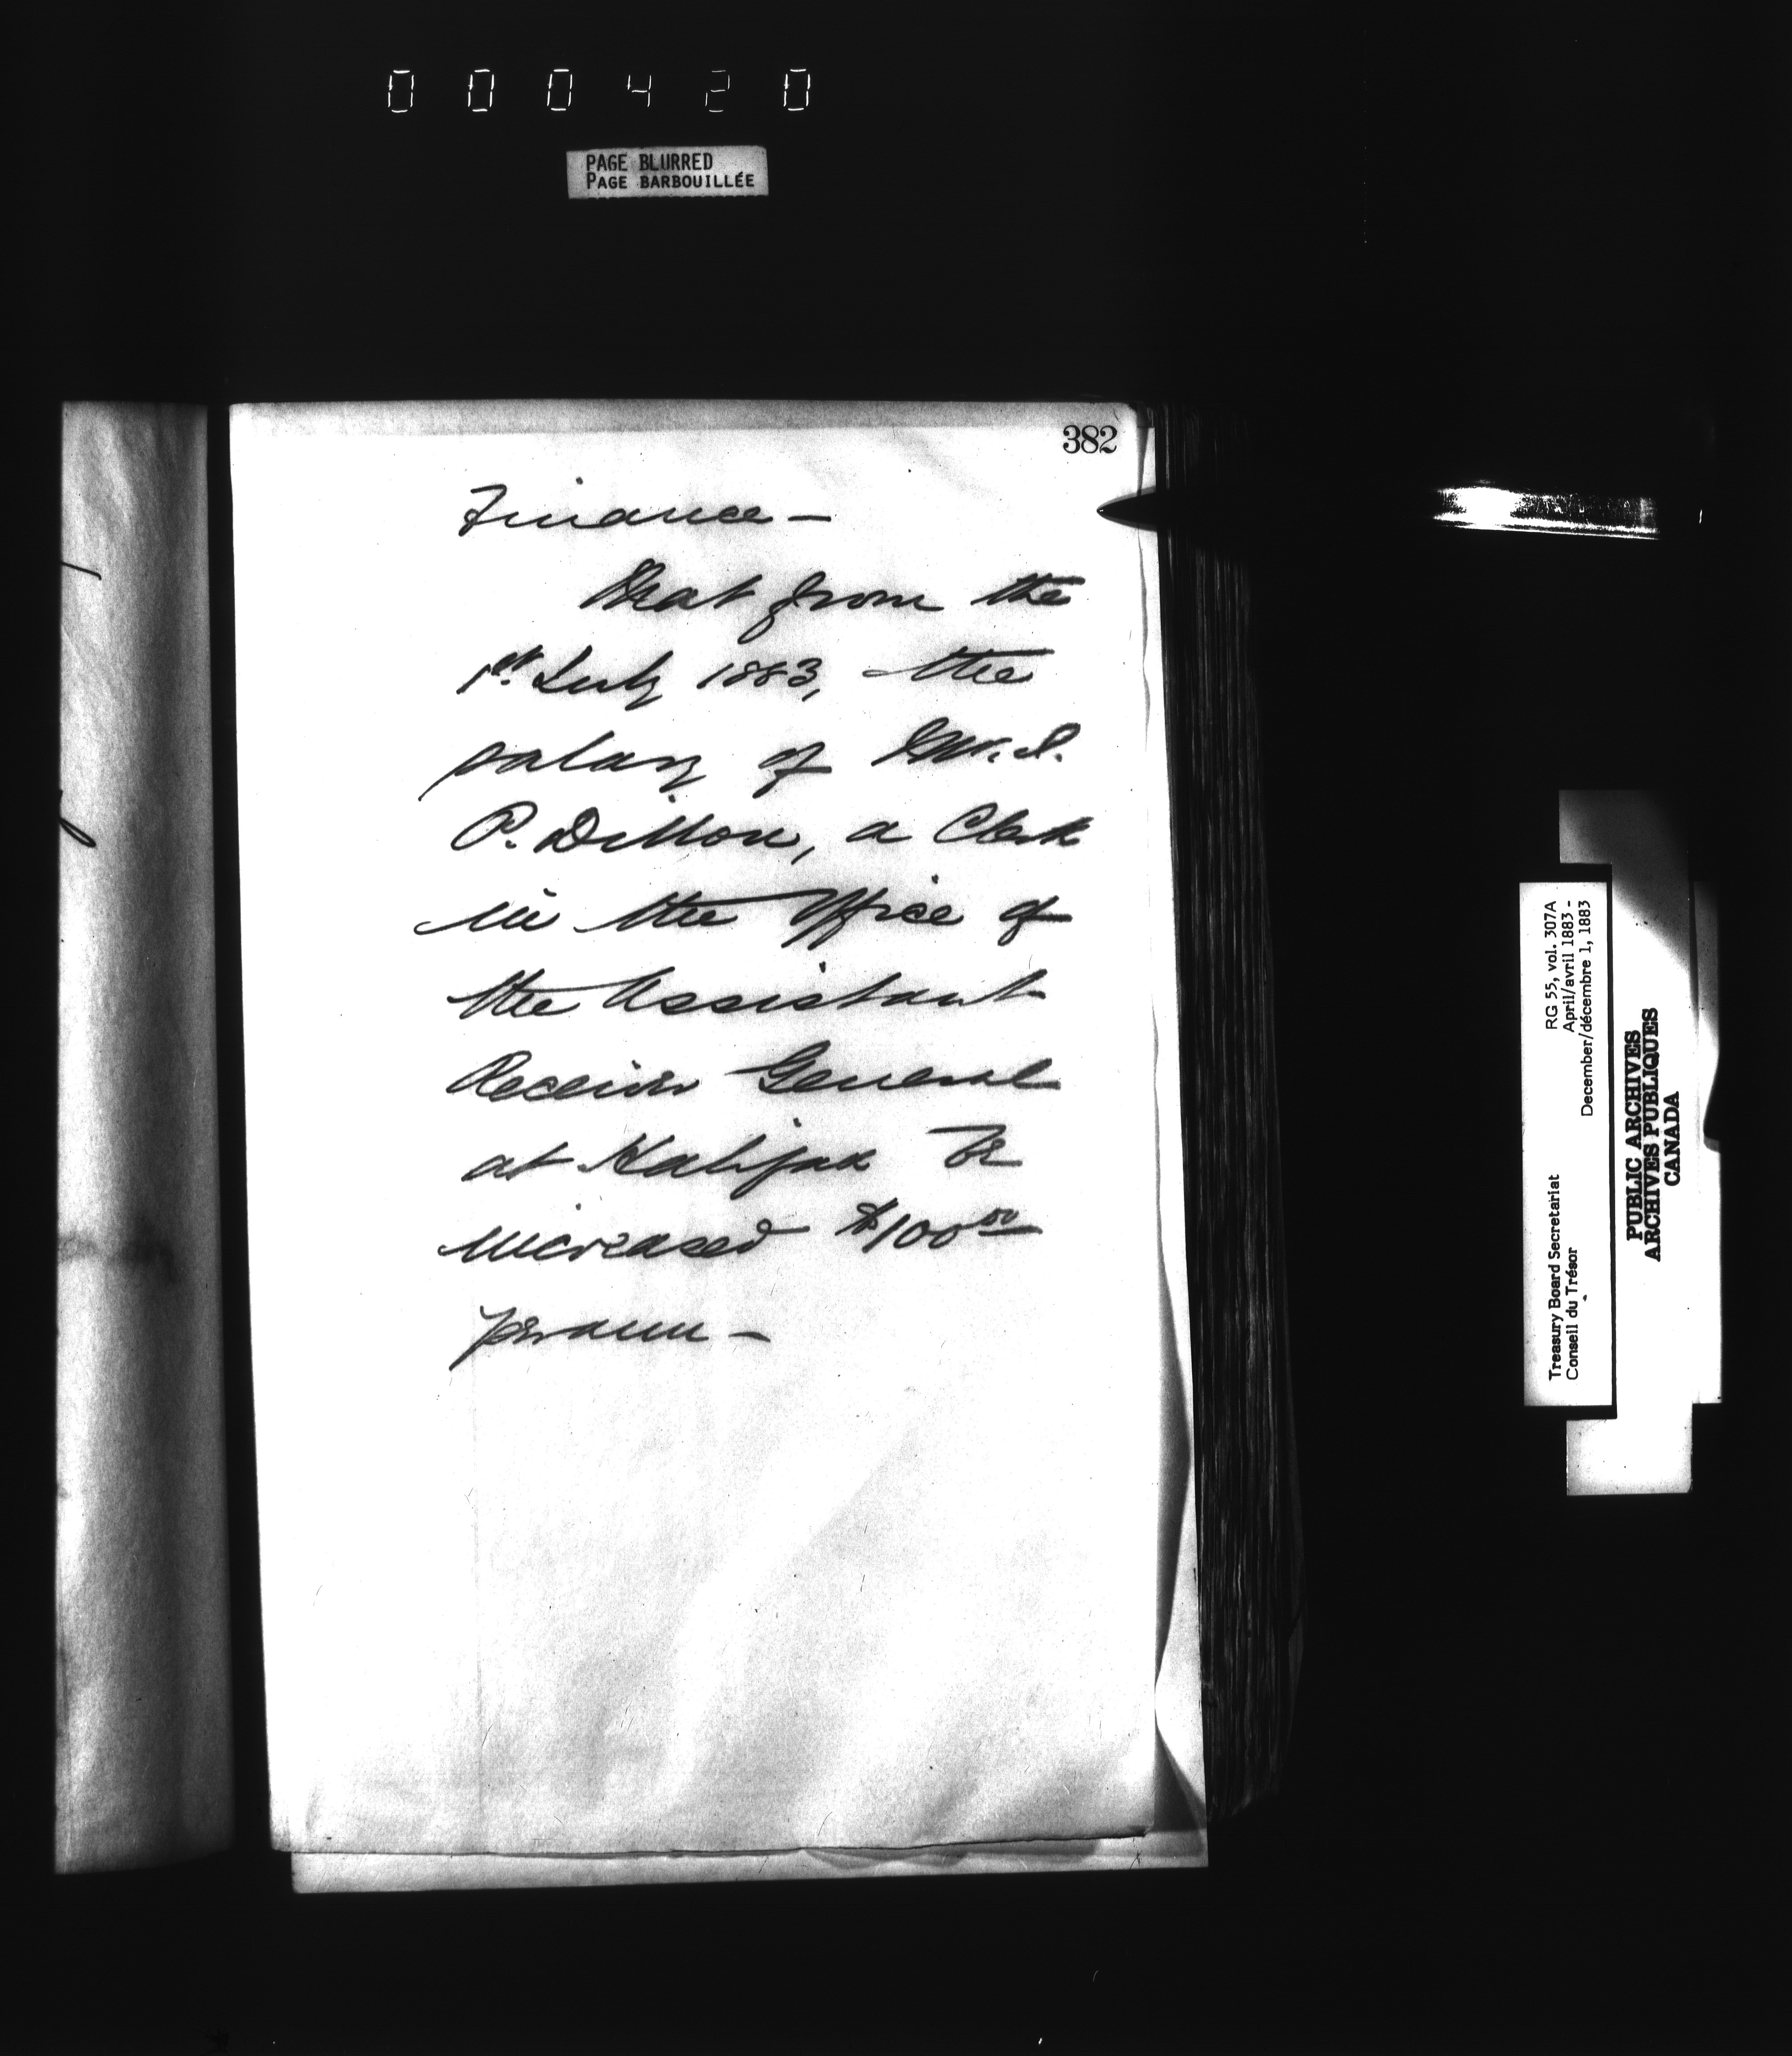 000420
PAGE BLURRED
PAGE BARBOUILLÉE
382
Finance —
that from the
1st. July 1883, the
salary of
P. Dillon, a Clerk
in the Office of
the Assistant
Receiver General
at Halifax be
increased $100.00
per ann —
Treasury Board Secretariat RG 55, vol. 307A
Conseil du Trésor April/avril 1883 -
December/décembre 1, 1883
PUBLIC ARCHIVES
ARCHIVES PUBLIQUES
CANADA